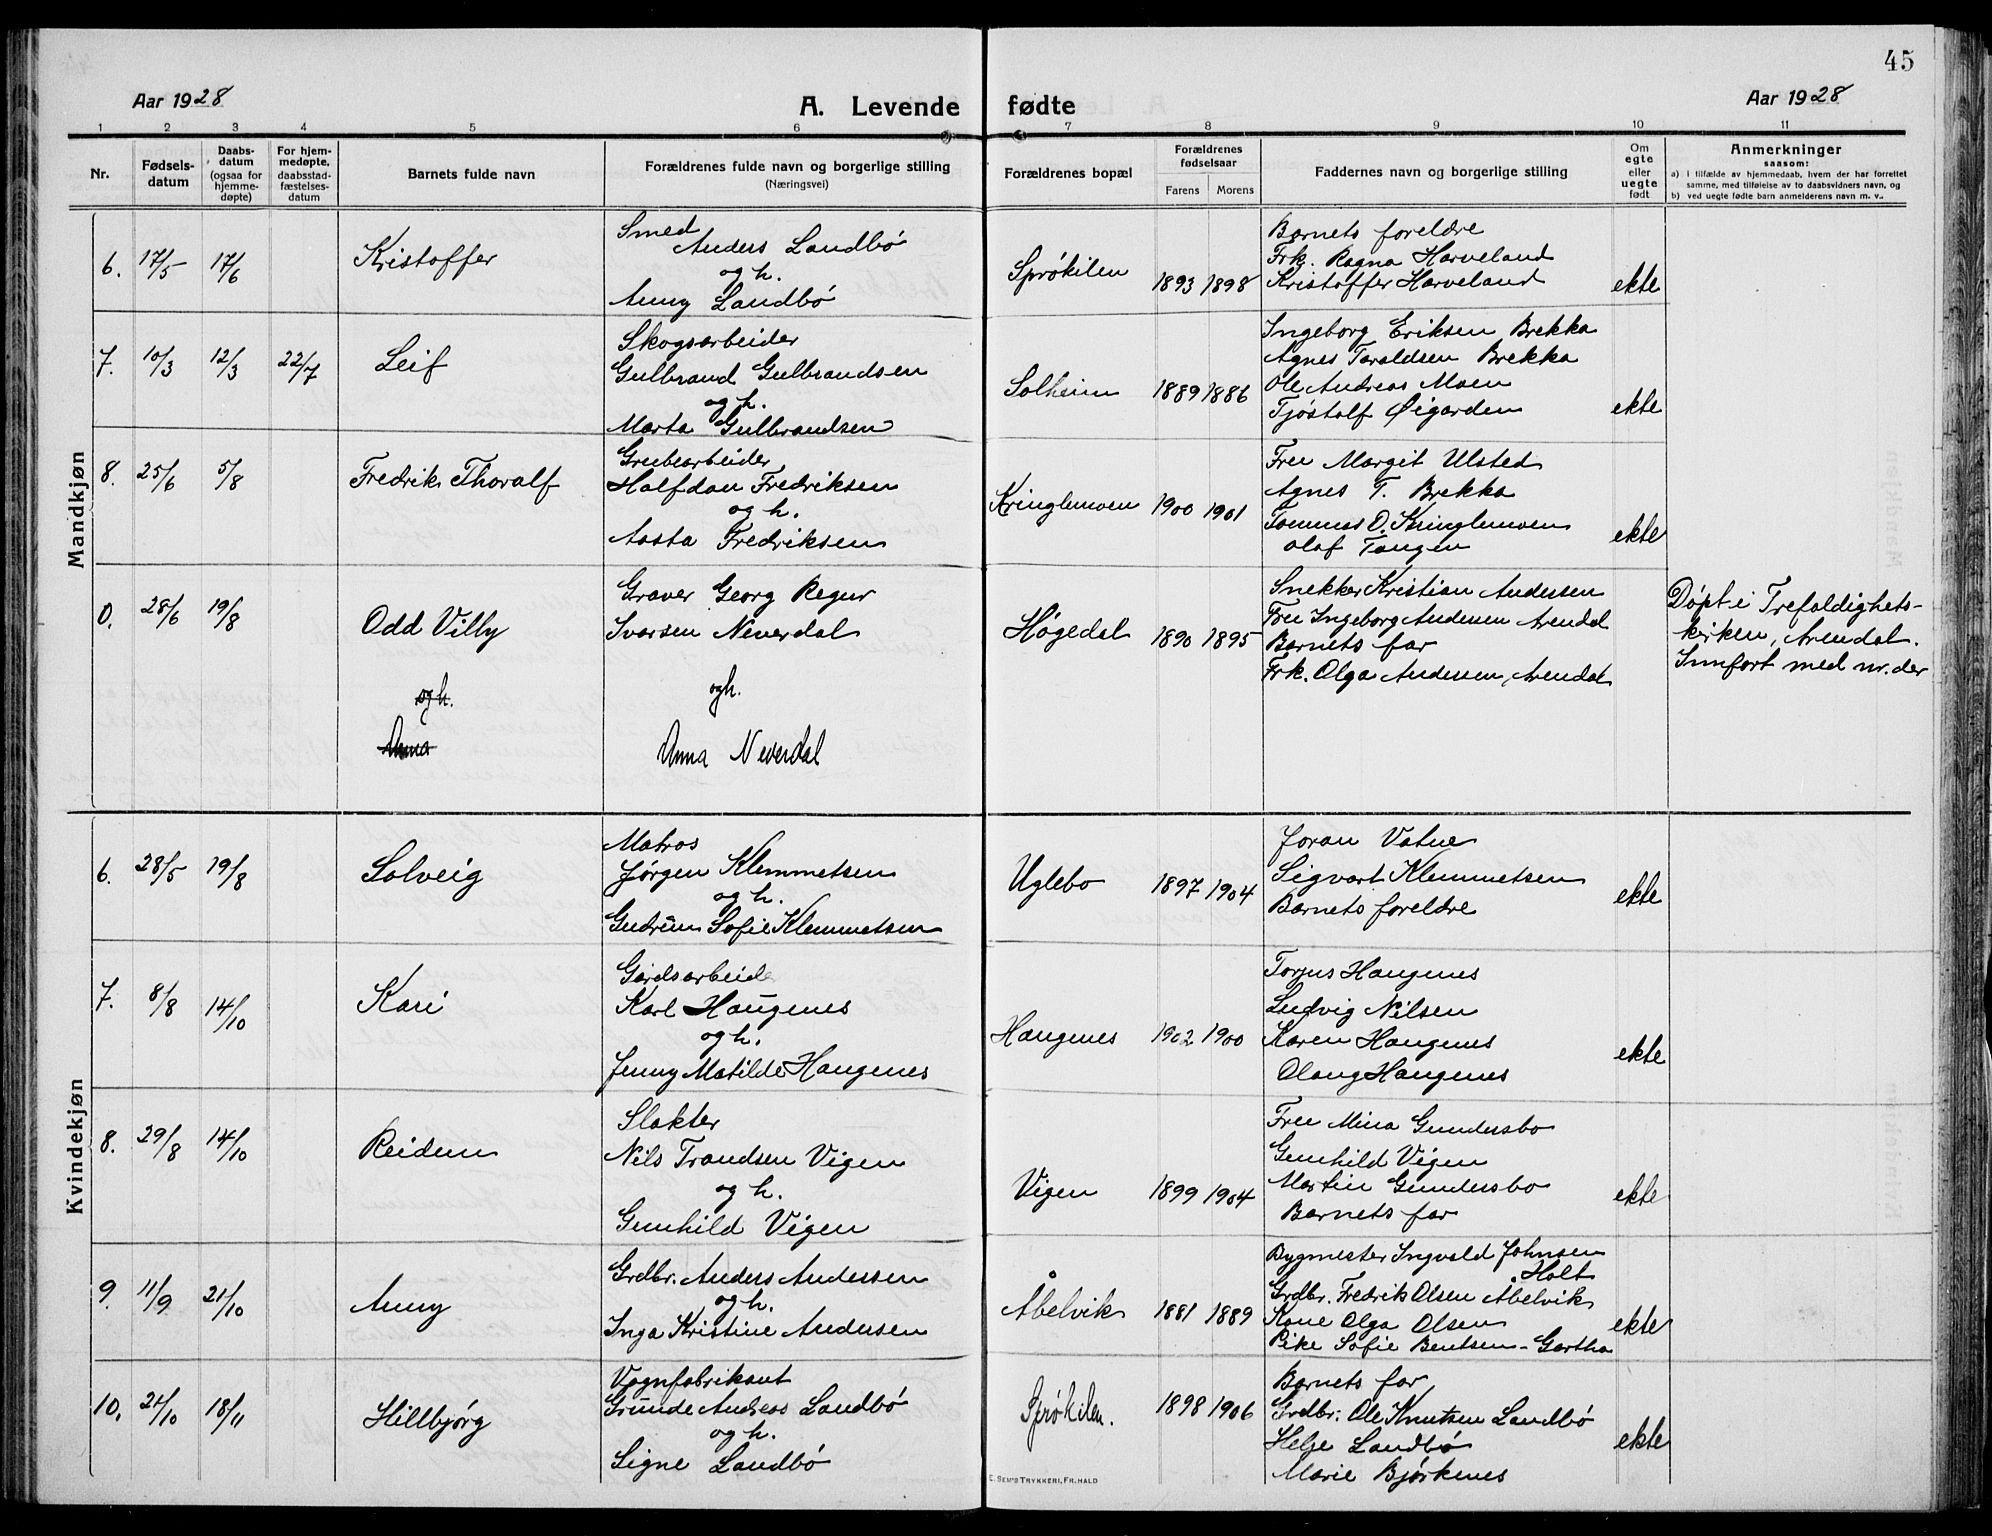 45
Aar 1928
A. Levende fødte
Aar 1928
1 2 3 4 5 6 7 8 9 10 11
Nr.
Fødsels-
datum
Daabs-
datum
(ogsaa for
hjemme-
døpte)
For hjem-
medøpte,
daabsstad-
fæstelses-
datum
Barnets fulde navn
Forældrenes fulde navn og borgerlige stilling
(Næringsvei)
Forældrenes bopæl
Forældrenes
fødselsaar
Farens Morens
Faddernes navn og borgerlige stilling
Om
egte
eller
uegte
født
Anmerkninger
saasom:
a) i tilfælde av hjemmedaab, hvem der har forrettet
samme, med tilføielse av to daabsvidners navn, og
b) ved uegte fødte barn anmelderens navn m. v..
Mandkjøn
6. 17/5 17/6
Kristoffer
Smed
Anders Landbø
og h.
Anny Landbø
Sprøkilen
1893 1898
Barnets foreldre
Frk. Ragna Harveland
Kristoffer Harveland
ekte
7. 10/3 12/3 22/7
Leif
Skogsarbeider
Gulbrand Gulbrandsen
og h.
Marta Gulbrandsen
Solheim
1889 1886
Ingeborg Eriksen Brekka
Agnes Taraldsen Brekka
Ole Andreas Moen
Tjøstolf Øigarden
ekte
8. 25/6 5/8
Fredrik Thoralf
Grubearbeider
Halfdan Fredriksen
og h.
Aasta Fredriksen
Kringlemoen
1900 1901
Fru Margit Ulsted
Agnes T. Brekka
Tommas O. Kringlemoen
Olaf Tangen
ekte
0. 28/6 19/8
Odd Villy
og h.
Anna
Graver Georg Regur
Ivarsen Neverdal
og h.
Anna Neverdal
Høgedal
1890 1895
Snekker Kristian Andersen
Fru Ingeborg Andersen Arendal
Barnets far
Frk. Olga Andersen, Arendal
Døpt i Trefoldighets-
kirken, Arendal.
Innført med nr. der
Kvindekjøn
6. 28/5 19/8
Solveig
Matros
Jørgen Klemmetsen
og h.
Gudrun Sofie Klemmetsen
Uglebo
1897 1904
Joran Vatne
Sigvart Klemmetsen
Barnets foreldre
ekte
7. 8/8 14/10
Kari
Gårdsarbeide
Karl Haugenes
og h.
Jenny Matilde Haugenes
Haugenes
1902 1900
Torjus Haugenes
Ludvig Nilsen
Karen Haugenes
Olaug Haugenes
ekte
8. 29/8 14/10
Reidun
Slakter
Nils Trondsen Vigen
og h.
Gunhild Vigen
Vigen
1899 1904
Fru Mina Gundersbo
Gunhild Vigen
Martin Gundersbo
Barnets far
ekte
9. 11/9 21/10
Anny
Grdbr. Anders Andersen
og h.
Inga Kristine Andersen
Åbelvik
1881 1889
Bygmester Ingvald Johnsen
Holt
Grdbr. Fredrik Olsen Åbelvik
Kone Olga Olsen
Pike Sofie Bentsen-Gartha
ekte
10. 24/10 18/11
Hillbjørg
Vognfabrikant
Grunde Andreas Landbø
og h.
Signe Landbø
Sprøkilen.
1898 1906
Barnets far
Grdbr. Ole Knutsen Landbø
Helje Landbø
Marie Bjørkenes
ekte
E. SEM'S TRYKKERI, FR. HALD